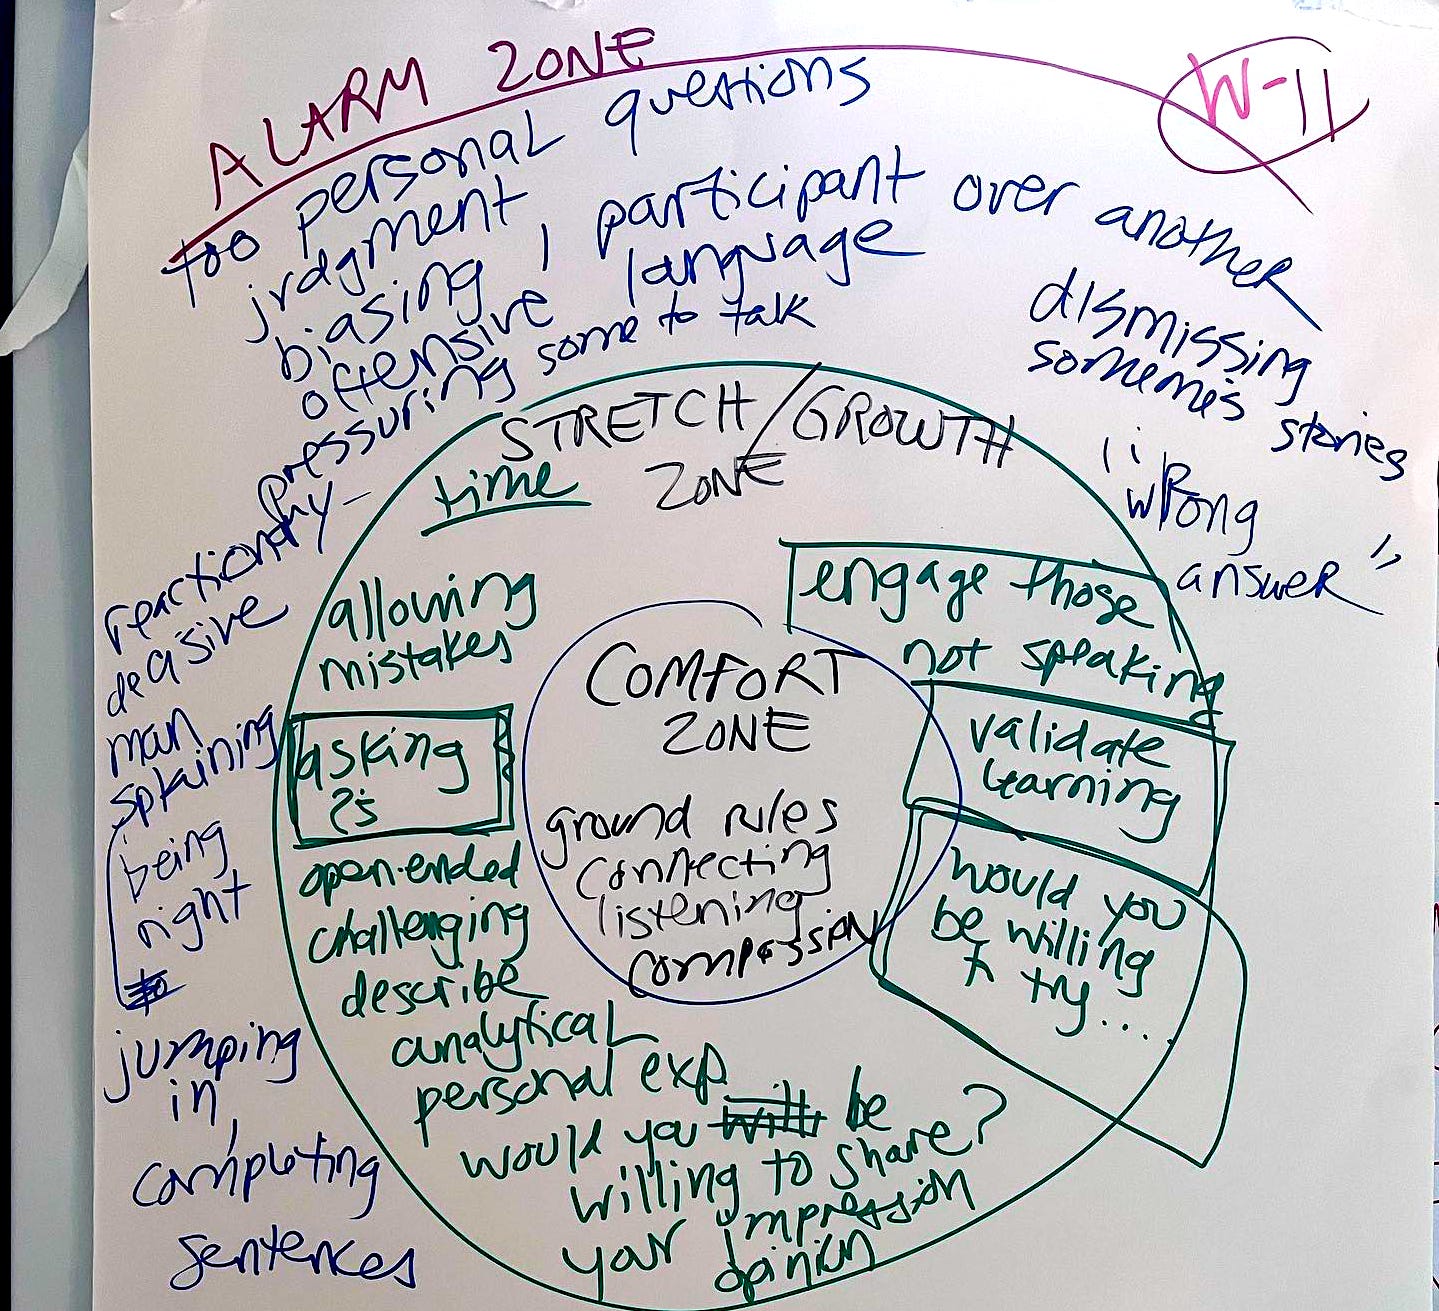 ALARM ZONE
W-11
too personal questions
judgment
biasing 1 participant over another
offensive language
pressuring some to talk
dismissing
someone's stories
"wrong
answer"
reactionary
decisive
man
splaining
being
right
to
jumping
in,
completing
sentences
STRETCH/GROWTH
ZONE
time
allowing
mistakes
asking
?s
open-ended
challenging
describe
analytical
personal exp
would you will be
willing to share?
your impression
opinion
engage those
not speaking
validate
learning
would you
be willing
to try...
COMFORT
ZONE
ground rules
connecting
listening
compassion